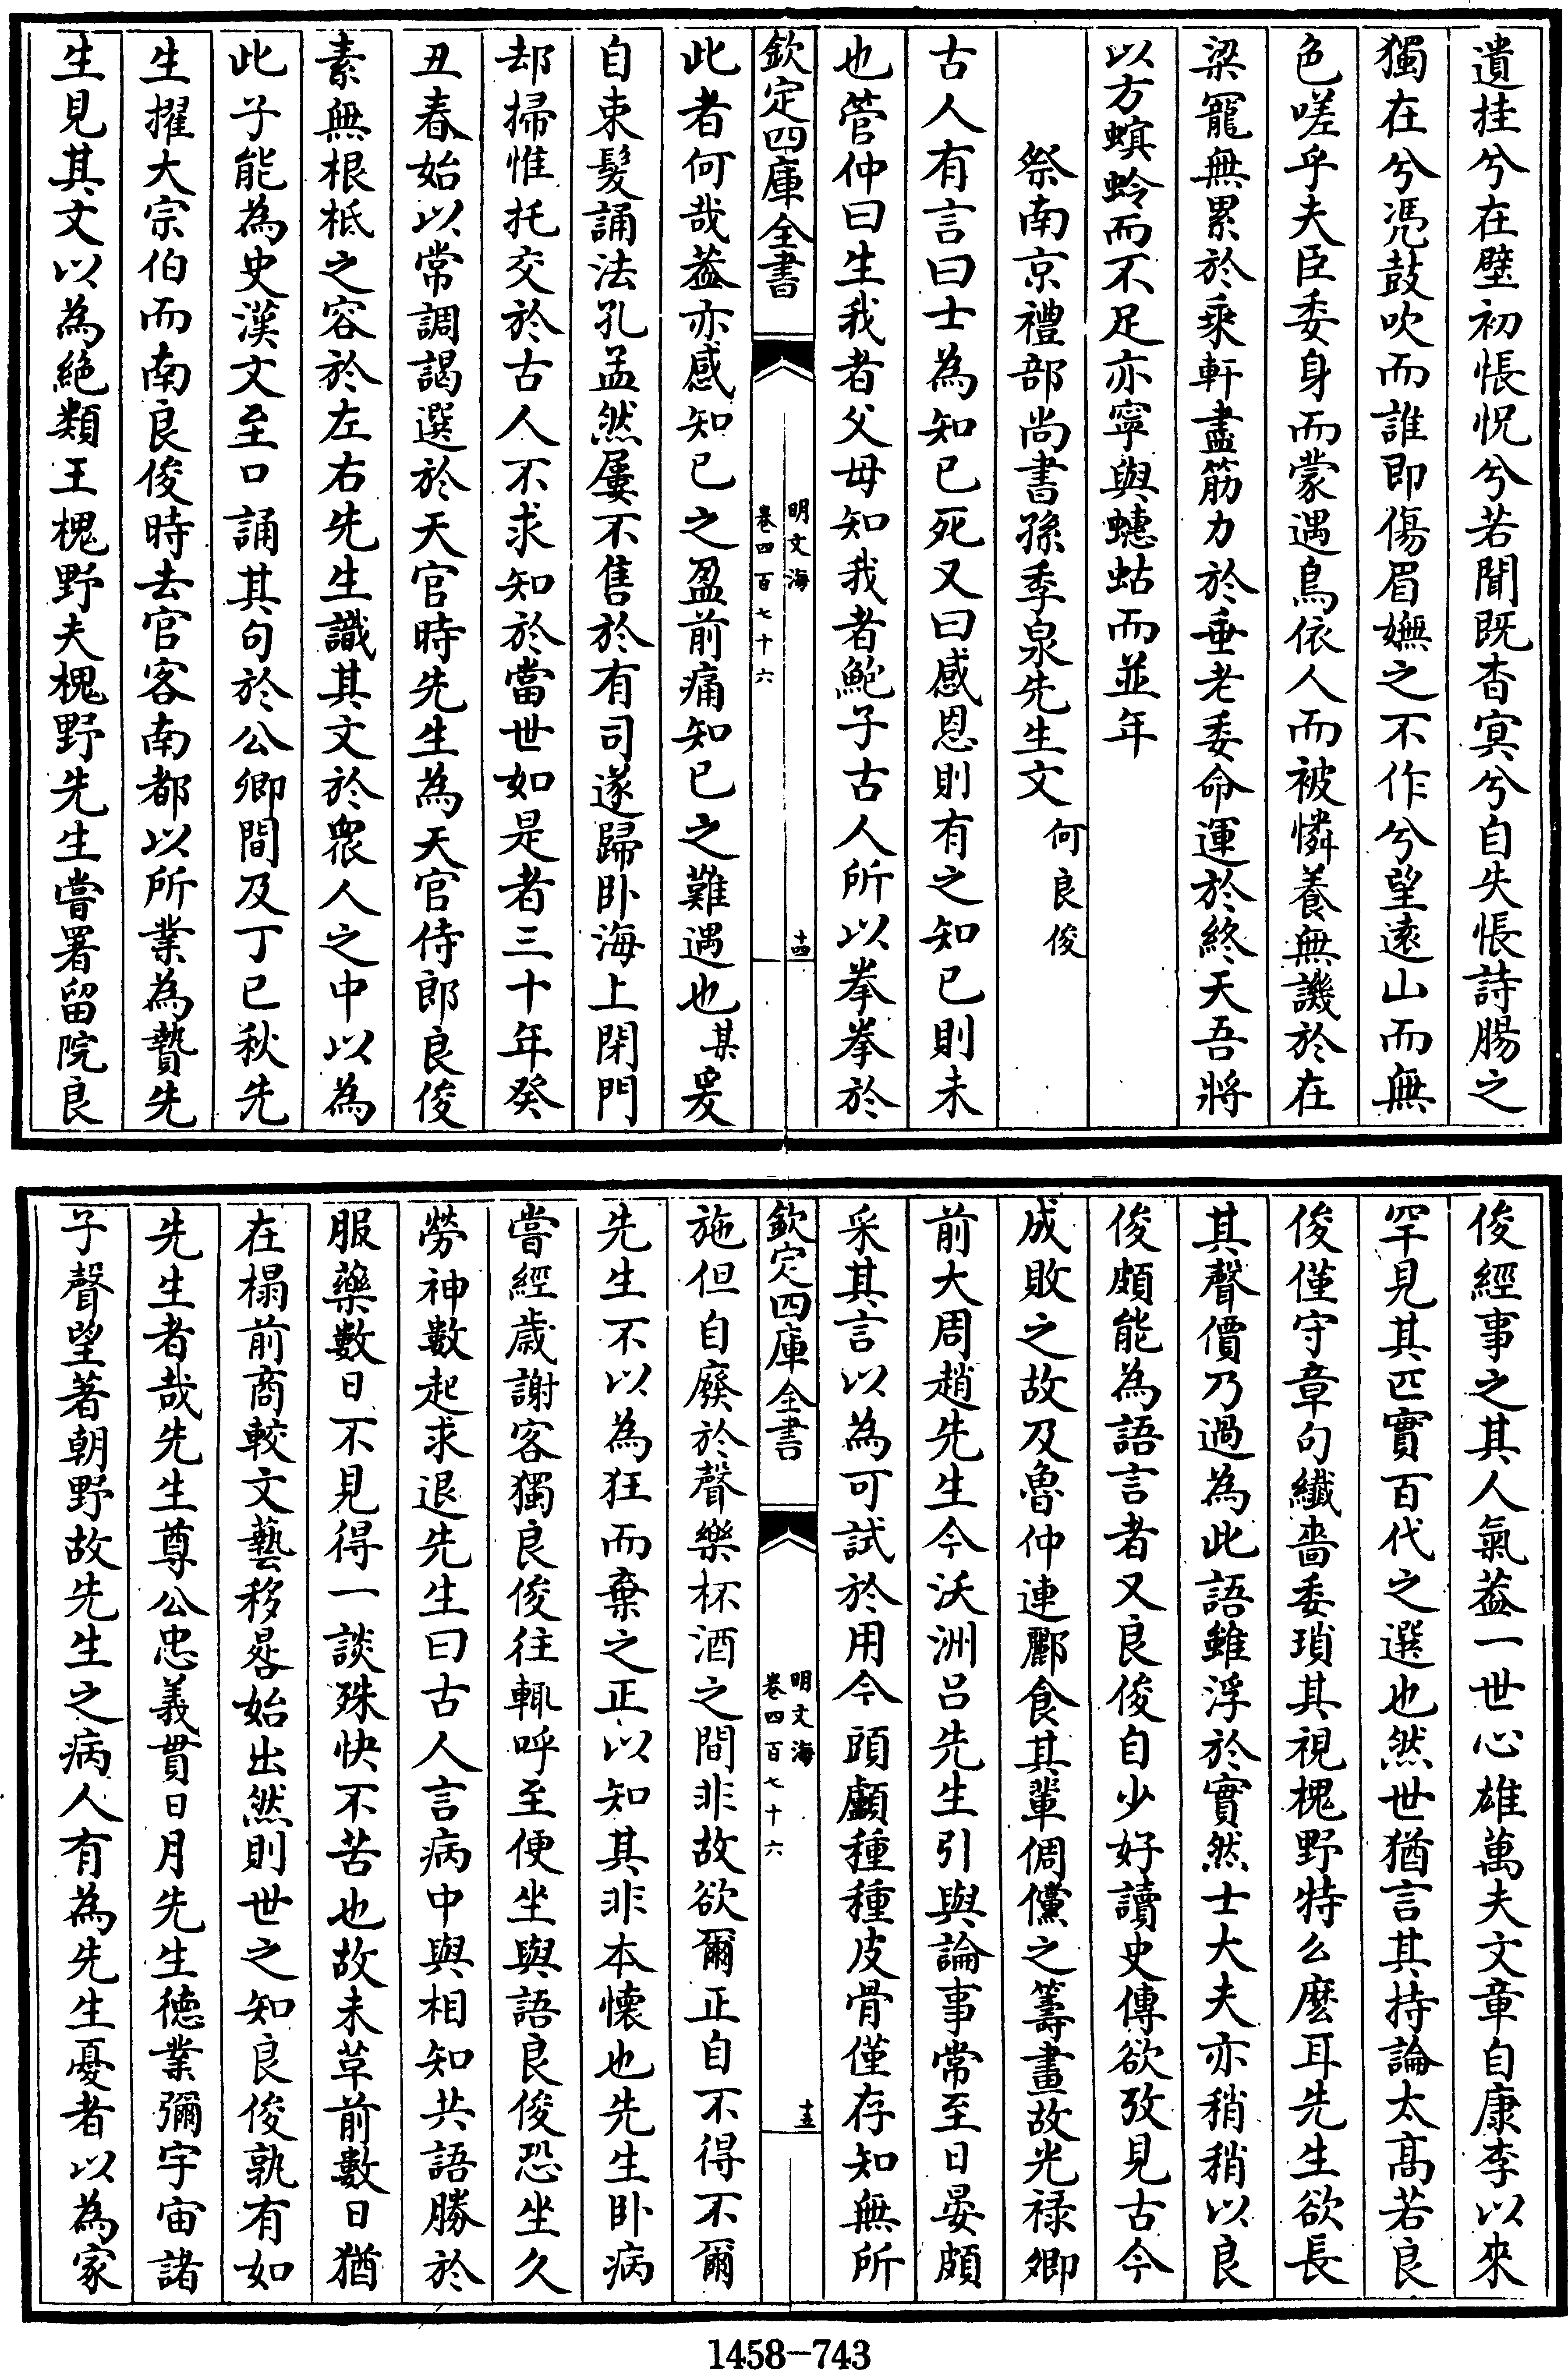 遺挂兮在壁初悵怳兮若聞既杳冥兮自失悵詩腸之
獨在兮凴鼓吹而誰即傷眉嫵之不作兮望遠山而無
色嗟乎夫臣委身而蒙遇鳥依人而被憐養無譏於在
梁寵無累於乘軒盡筋力於垂老委命運於終天吾將
以方螟蛉而不足亦寧與蟪蛄而並年
祭南京禮部尚書孫季泉先生文 何良俊
古人有言曰士為知已死又曰感恩則有之知已則未
也管仲曰生我者父母知我者鮑子古人所以拳拳於
欽定四庫全書 明文海 卷四百七十六 十四
此者何哉葢亦感知已之盈前痛知已之難遇也某爰
自束髮誦法孔孟然屢不售於有司遂歸卧海上閉門
却掃惟托交於古人不求知於當世如是者三十年癸
丑春始以常調謁選於天官時先生為天官侍郎良俊
素無根柢之容於左右先生識其文於衆人之中以為
此子能為史漢文至口誦其句於公卿間及丁巳秋先
生擢大宗伯而南良俊時去官客南都以所業為贄先
生見其文以為絶類王槐野夫槐野先生嘗署留院良
俊經事之其人氣葢一世心雄萬夫文章自康李以來
罕見其匹實百代之選也然世猶言其持論太高若良
俊僅守章句纎嗇委瑣其視槐野特么麽耳先生欲長
其聲價乃過為此語雖浮於實然士大夫亦稍稍以良
俊頗能為語言者又良俊自少好讀史傳欲攷見古今
成敗之故及魯仲連酈食其輩倜儻之籌畫故光禄卿
前大周趙先生今沃洲吕先生引與論事常至日晏頗
采其言以為可試於用今頭顱種種皮骨僅存知無所
欽定四庫全書 明文海 卷四百七十六 十五
施但自廢於聲樂杯酒之間非故欲爾正自不得不爾
先生不以為狂而棄之正以知其非本懷也先生卧病
嘗經歲謝客獨良俊往輒呼至便坐與語良俊恐坐久
勞神數起求退先生曰古人言病中與相知共語勝於
服藥數日不見得一談殊快不苦也故未草前數日猶
在榻前商較文藝移晷始出然則世之知良俊孰有如
先生者哉先生尊公忠義貫日月先生徳業彌宇宙諸
子聲望著朝野故先生之病人有為先生憂者以為家
1458-743